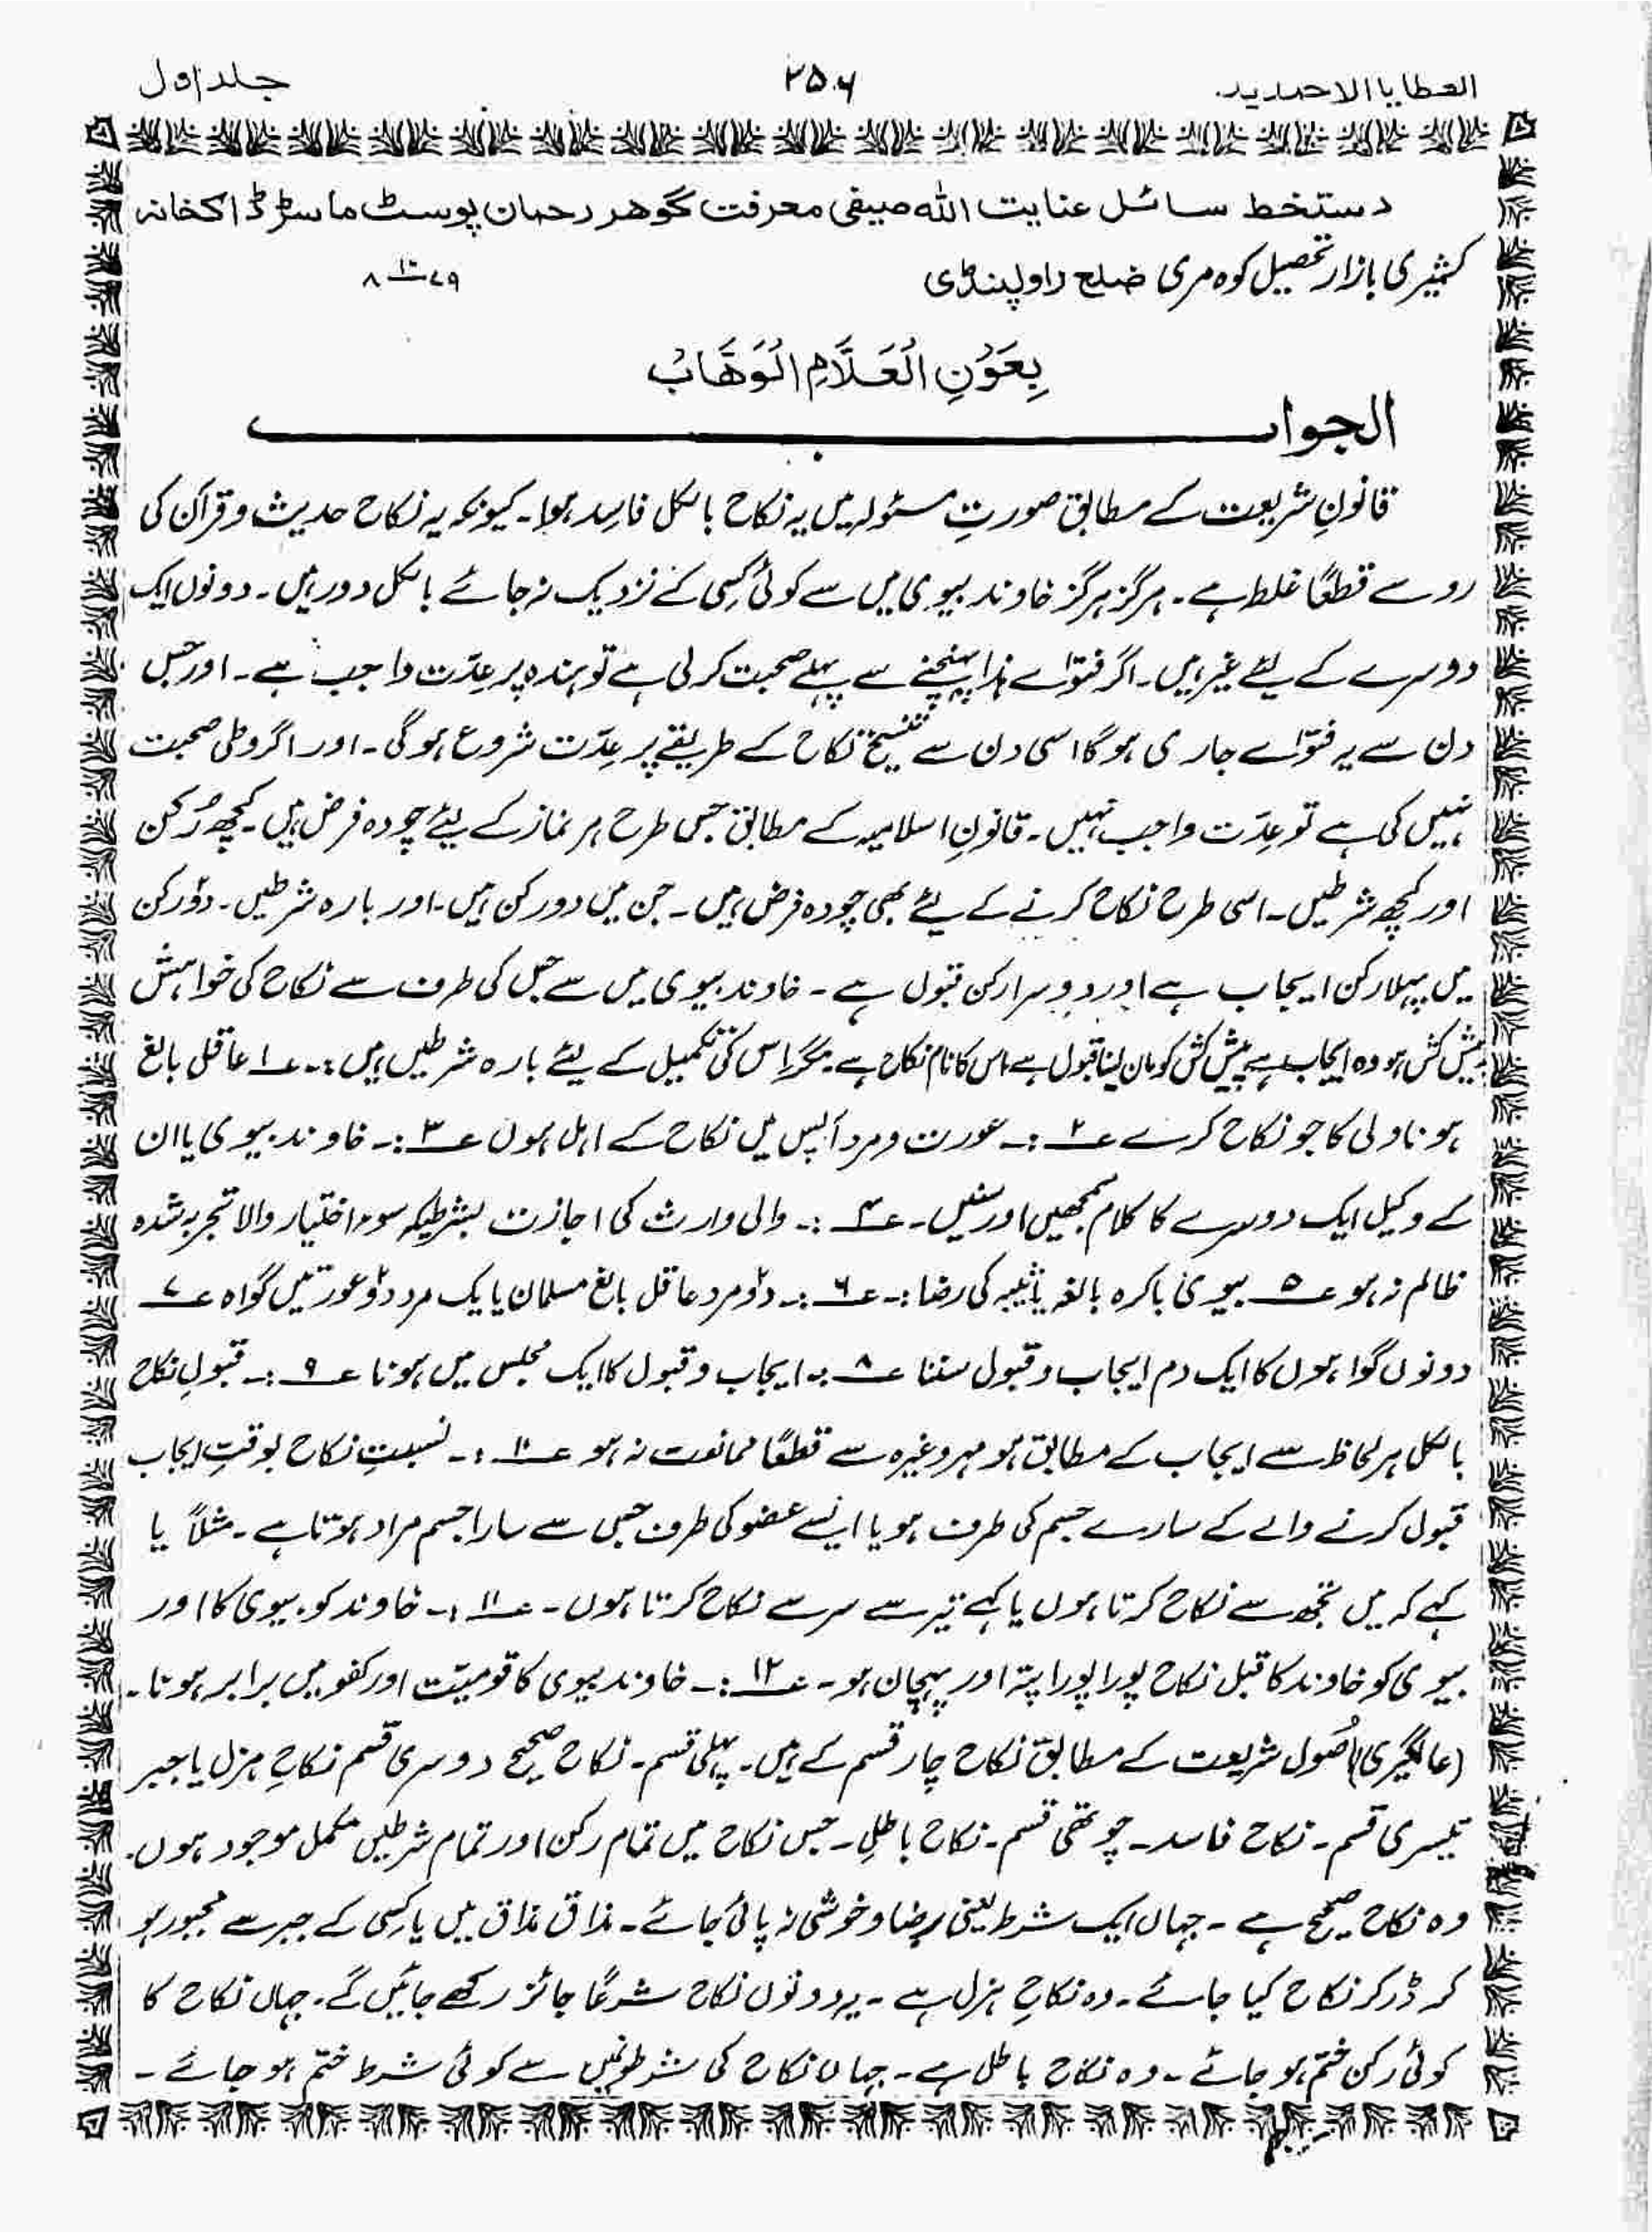 العطایا الاحمدیہ
۲۵۶
جلد اول
دستخط سائل عنایت اللہ صیفی معرفت گوھر رحمان پوسٹ ماسٹر ڈاکخانہ
کشیری بازار تحصیل کوہ مری ضلع راولپنڈی
بِعَوْنِ الْعَلَّامِ الْوَھَّابْ
الجواب
قانونِ شریعت کے مطابق صورتِ مسئولہ میں یہ نکاح بالکل فاسد ہوا۔ کیونکہ یہ نکاح حدیث و قرآن کی
رو سے قطعًا غلط ہے۔ ہرگز ہرگز خاوند بیوی میں سے کوئی کسی کے نزدیک نہ جائے بالکل دور رہیں۔ دونوں ایک
دوسرے کے لئے غیر ہیں۔ اگر فتوٰے ہذا پہنچنے سے پہلے صحبت کر لی ہے تو ہندہ پر عدّت واجب ہے۔ اور جس
دن سے یہ فتوٰے جاری ہو گا اسی دن سے تنسیخ نکاح کے طریقے پر عدّت شروع ہو گی۔ اور اگر وطی صحبت
نہیں کی ہے تو عدّت واجب نہیں۔ قانونِ اسلامیہ کے مطابق جس طرح ہر نماز کے لیئے چودہ فرض ہیں۔ کچھ رُکن
اور کچھ شرطیں۔ اسی طرح نکاح کرنے کے لئے بھی چودہ فرض ہیں۔ جن میں دو رکن ہیں۔ اور بارہ شرطیں۔ دو رکن
میں پہلا رکن ایجاب ہے اور دوسرا رکن قبول ہے۔ خاوند بیوی میں سے جس کی طرف سے نکاح کی خواہش
پیش کش ہو وہ ایجاب ہے پیش کش کو مان لینا قبول ہے اس کا نام نکاح ہے۔ مگر اس کی تکمیل کے لیئے بارہ شرطیں ہیں:۔ ؏۱ عاقل بالغ
ہونا ولی کا جو نکاح کرے ؏۲ :۔ عورت و مرد آپس میں نکاح کے اہل ہوں ؏۳ :۔ خاوند بیوی یا ان
کے وکیل ایک دوسرے کا کلام سمجھیں اور سنیں۔ ؏۴ :۔ والی وارث کی اجازت بشرطیکہ سوء اختیار والا تجربہ شدہ
ظالم نہ ہو ؏۵ بیوی باکرہ بالغہ یا ثیبہ کی رضا :۔ ؏۶ :۔ دو مرد عاقل بالغ مسلمان یا ایک مرد دو عورتیں گواہ ؏۷
دونوں گواہوں کا ایک دم ایجاب و قبول سننا ؏۸ :۔ ایجاب و قبول کا ایک مجلس میں ہونا ؏۹ :۔ قبولِ نکاح
بالکل ہر لحاظ سے ایجاب کے مطابق ہو مہر وغیرہ سے قطعًا ممانعت نہ ہو ؏۱۰ :۔ نسبتِ نکاح بوقتِ ایجاب
قبول کرنے والے کے سارے جسم کی طرف ہو یا ایسے عضو کی طرف جس سے سارا جسم مراد ہوتا ہے۔ مثلاً یا
کہے کہ میں تجھ سے نکاح کرتا ہوں یا کہے تیرے سر سے نکاح کرتا ہوں۔ ؏۱۱ :۔ خاوند کو بیوی کا اور
بیوی کو خاوند کا قبل نکاح پورا پورا پتہ اور پہچان ہو۔ ؏۱۲ :۔ خاوند بیوی کا قومیّت اور کفو میں برابر ہونا۔
(عالمگیری) اُصُول شریعت کے مطابق نکاح چار قسم کے ہیں۔ پہلی قسم۔ نکاح صحیح دوسری قسم نکاحِ ہزل یا جبر
تیسری قسم۔ نکاح فاسد۔ چوتھی قسم۔ نکاح باطل۔ جس نکاح میں تمام رکن اور تمام شرطیں مکمل موجود ہوں۔
وہ نکاح صحیح ہے۔ جہاں ایک شرط یعنی رضا و خوشی نہ پائی جائے۔ مذاق مذاق میں یا کسی کے جبر سے مجبور ہو
کر ڈر کر نکاح کیا جائے۔ وہ نکاحِ ہزل ہے۔ یہ دونوں نکاح شرعًا جائز رکھے جائیں گے۔ جہاں نکاح کا
کوئی رکن ختم ہو جائے۔ وہ نکاح باطل ہے۔ جہاں نکاح کی شرطوں میں سے کوئی شرط ختم ہو جائے۔